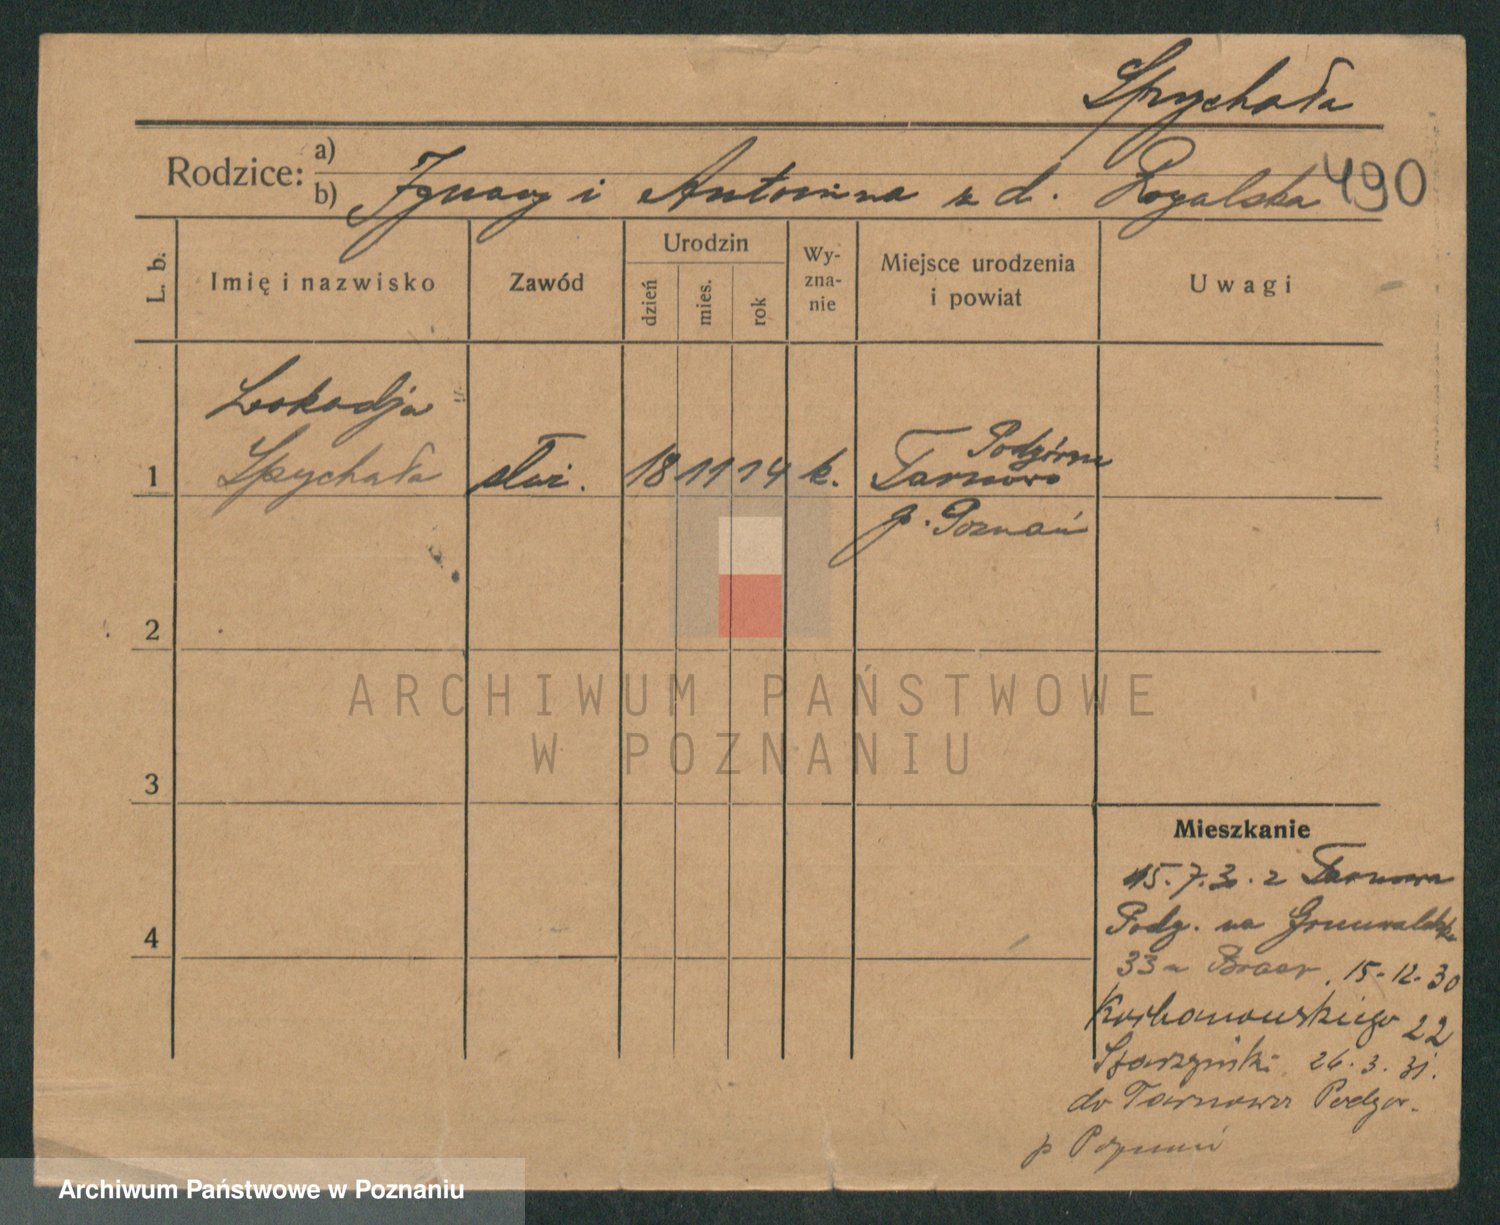 Spychała
Rodzice: a)
b) Ignacy i Antonina z d. Rogalska 490
L. b. Imię i nazwisko Zawód Urodzin dzień mies. rok Wy-zna-nie Miejsce urodzenia i powiat Uwagi
Leokadja
Podgórne
1 Spychała służ. 18 11 14 k. Tarnowo
p. Poznań
2
ARCHIWUM PAŃSTWOWE
W POZNANIU
3
Mieszkanie
15.7.30. z Tarnowa
4 Podg. na Grunwaldzka
33a 15.12.30
Kochanowskiego 22
26.3.31.
do Tarnowa Podgór.
p Poznań
Archiwum Państwowe w Poznaniu